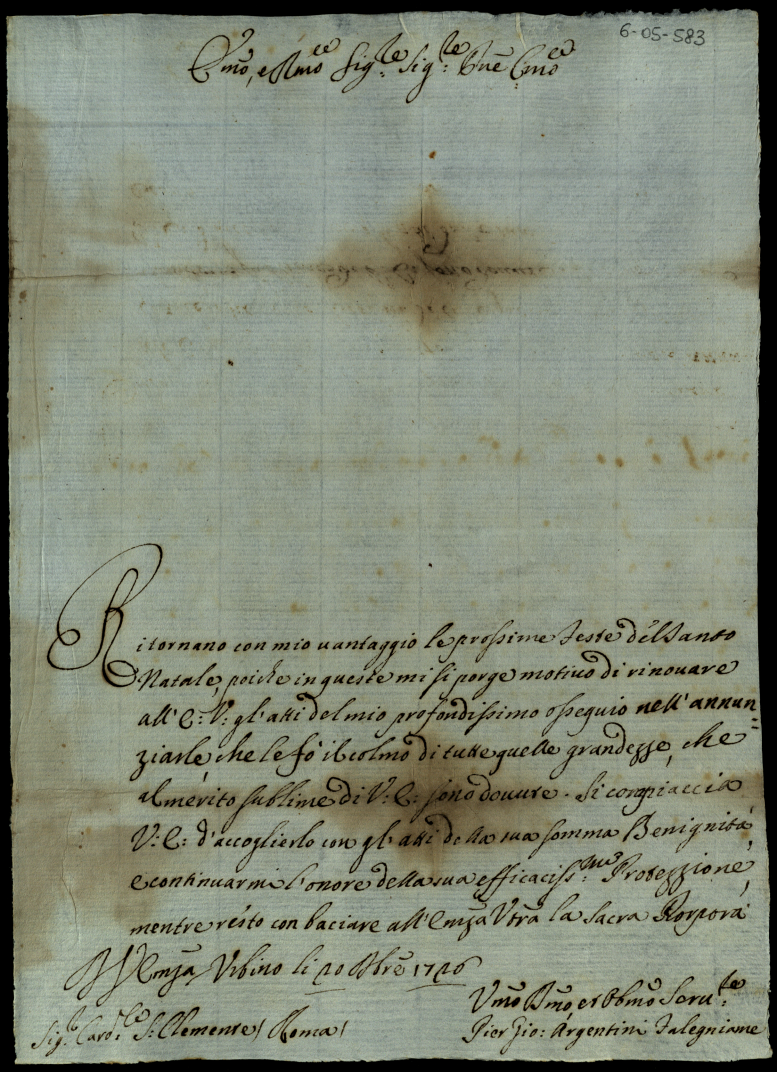 6-05-583
Emo, e Rmo Sigre Sigre Pne Cmo
Ritornano con mio uantaggio le prossime Feste del Santo
Natale, poiche in queste mi si porge motiuo di rinouare
all' E: V: gl' atti del mio profondissimo ossequio nell' annun=
ziarle, che le fò il colmo di tutte quelle grandezze, che
al merito sublime di V: E: sono douute. Si compiaccia
V: E: d'accoglierlo con gl' atti della sua somma Benignità,
e continuarmi l'onore della sua efficaciss:ma Protezzione,
mentre resto con baciare all' Emza Vtra la Sacra Porpora
Di V Emza Vrbino li 20 Xbre 1726
Vmo Dmo, et Obmo Seru:re
Sigr Card:le S: Clemente / Roma /
Pier Gio: Argentini Falegniame